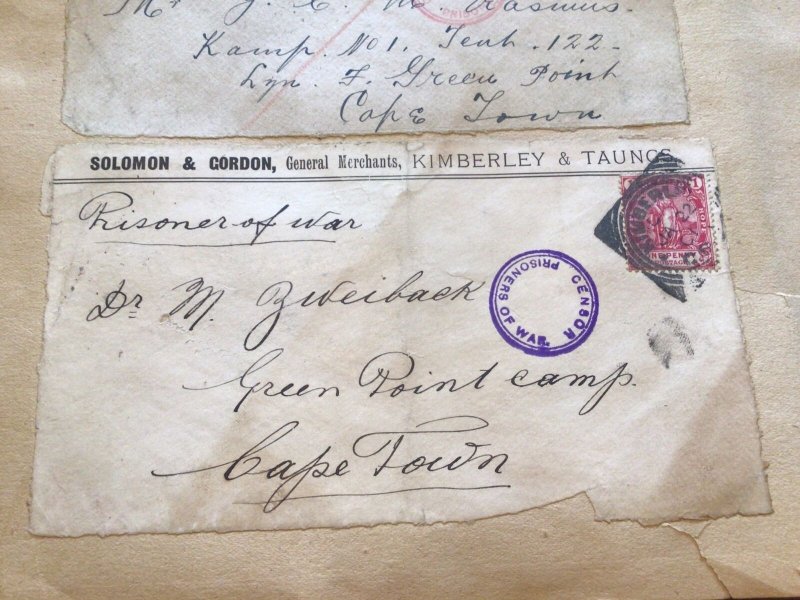 Mr J. C. M. Rasmus.
Kamp. No 1. Tent. 122-
Lyn. F. Green Point
Cape Town
SOLOMON & GORDON, General Merchants, KIMBERLEY & TAUNGS
Prisoner of War
Dr M. Zweiback
Green Point Camp.
Cape Town
CENSOR
PRISONERS OF WAR.
KIMBERLEY